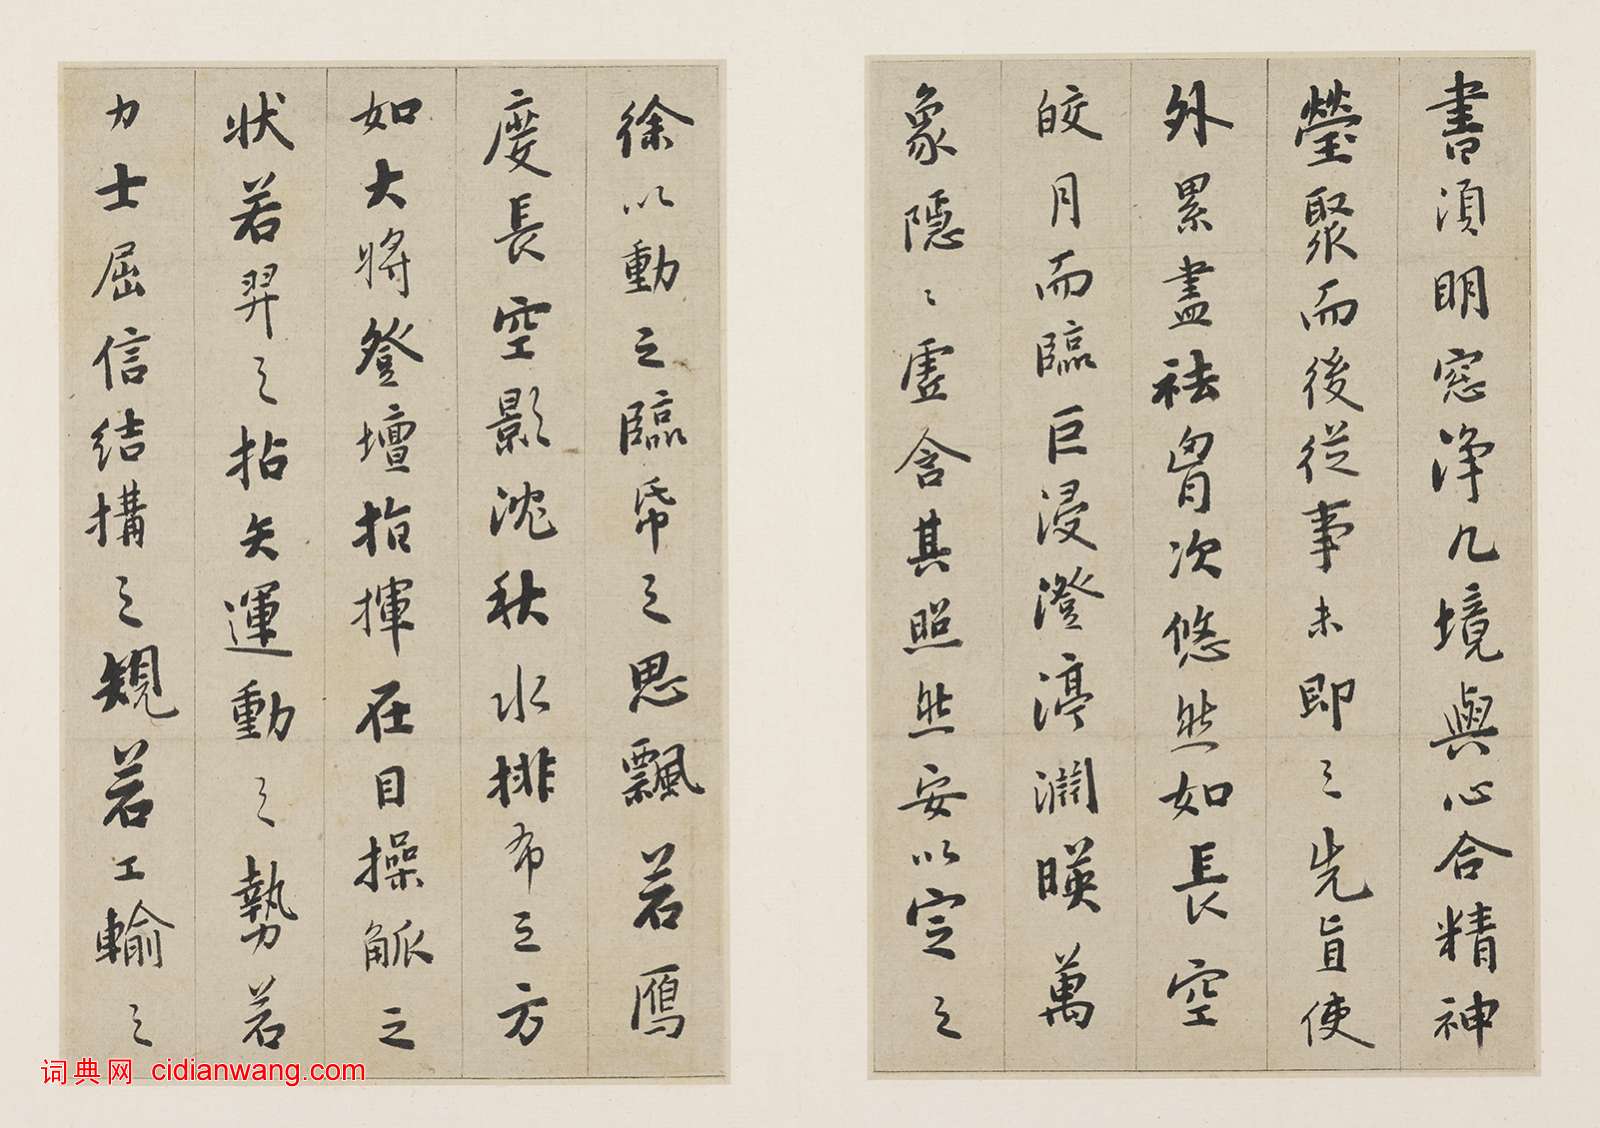 書須明窓淨几境與心合精神
瑩聚而後從事未即之先盲使
外累盡祛胷次悠然如長空
皎月而臨巨浸澄渟淵暎萬
象隱〻虛含其照然安以定之
徐以動之臨帋之思飄若鴈
度長空影沈秋水排布之方
如大將登壇指揮在目操觚之
狀若羿之拈矢運動之勢若
力士屈信結搆之規若工輸之
词典网 cidianwang.com